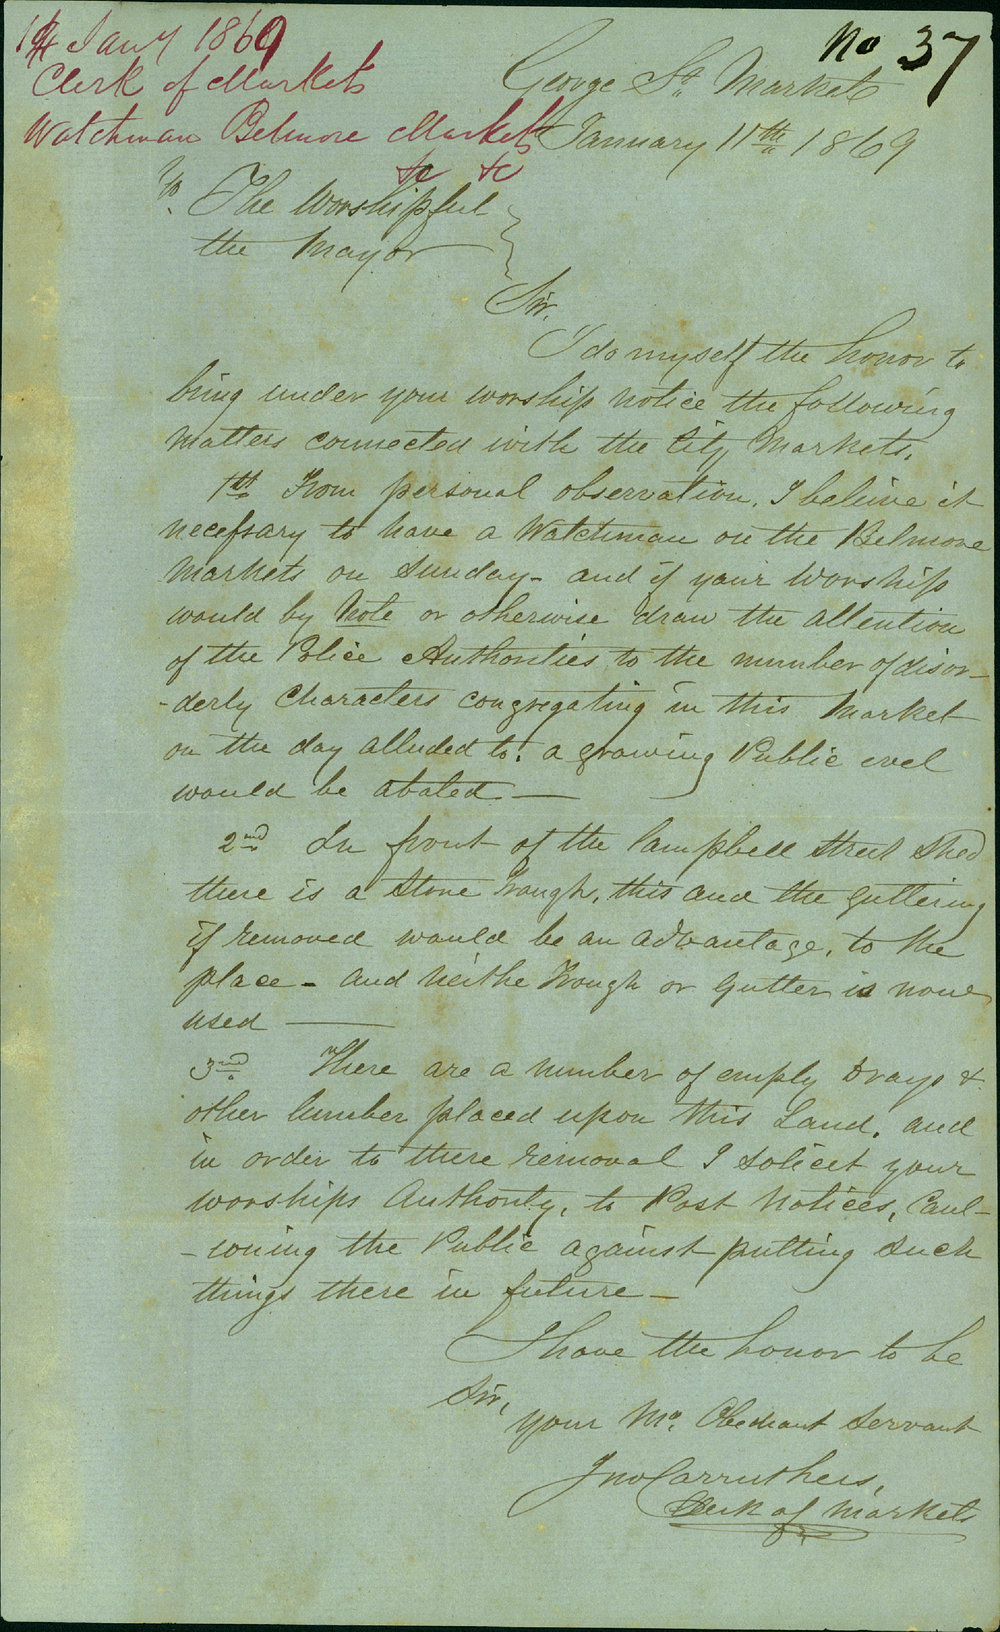 14 Jany 1869
Clerk of Markets
Watchman Belmore Markets
&c &c
No 37
George St. Markets
January 11th 1869
To The Worshipful
the Mayor
Sir.
I do myself the honor to
bring under your worship notice the following
matters connected with the City Markets.
1st From personal observation, I beleive it
necessary to have a Watchman on the Belmore
Markets on Sunday - and if your Worship
would by Note or otherwise draw the attention
of the Police Authorities to the number of disor-
-derly Characters congregating in this Market
on the day alluded to: a growing Public evel
would be abated —
2nd In front of the Campbell Street Shed
there is a Stone Trough, this and the guttering
if removed would be an advantage, to the
place - and neithe Trough or Gutter is none
used —
3nd There are a number of empty Drays &
other lumber placed upon this Land. and
in order to there removal I solicet your
worships Authority, to Post Notices, Caut-
-ioning the Public against putting such
things there in future —
I have the honor to be
Sir,
your Mo. Obediant Servant
Jno Carruthers,
Clerk of Markets